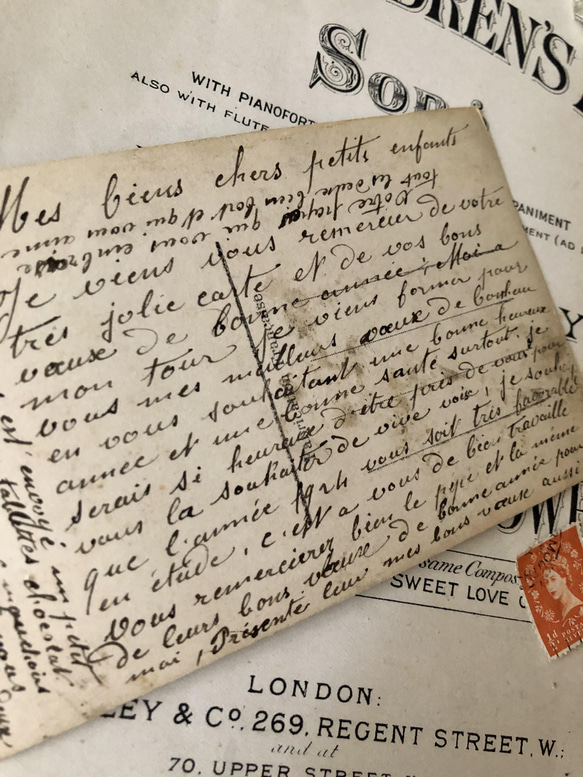 DREN'S
SO
WITH PIANOFORT
ALSO WITH FLUTE
PANIMENT
MENT (AD
Mes biens chers petits enfants
tout les deux bien fort et qui vous aime
votre qui vous embrasse
Je viens vous remercier de votre
très jolie carte et de vos bons
vœux de bonne année, Moi a
mon tour je viens former pour
vous mes meilleurs vœux de bonheur
en vous souhaitant une bonne heureuse
année et une bonne santé surtout. je
serais si heureux d'être près de vous pour
vous la souhaiter de vive voix, je souh
que l'année 1924 vous soit très favorable
en étude, c'est a vous de bien travaillé
Vous remercierez bien le pepe et la même
de leurs bons vœux de bonne année pour
moi, Présenté leur mes bons vœux aussi
envoyé un petit
tablettes chocolat
vous
deux
Carte Postale
same Compos
SWEET LOVE
½d
POSTA
LONDON:
LEY & Co, 269, REGENT STREET, W.:
and at
70, UPPER STREET